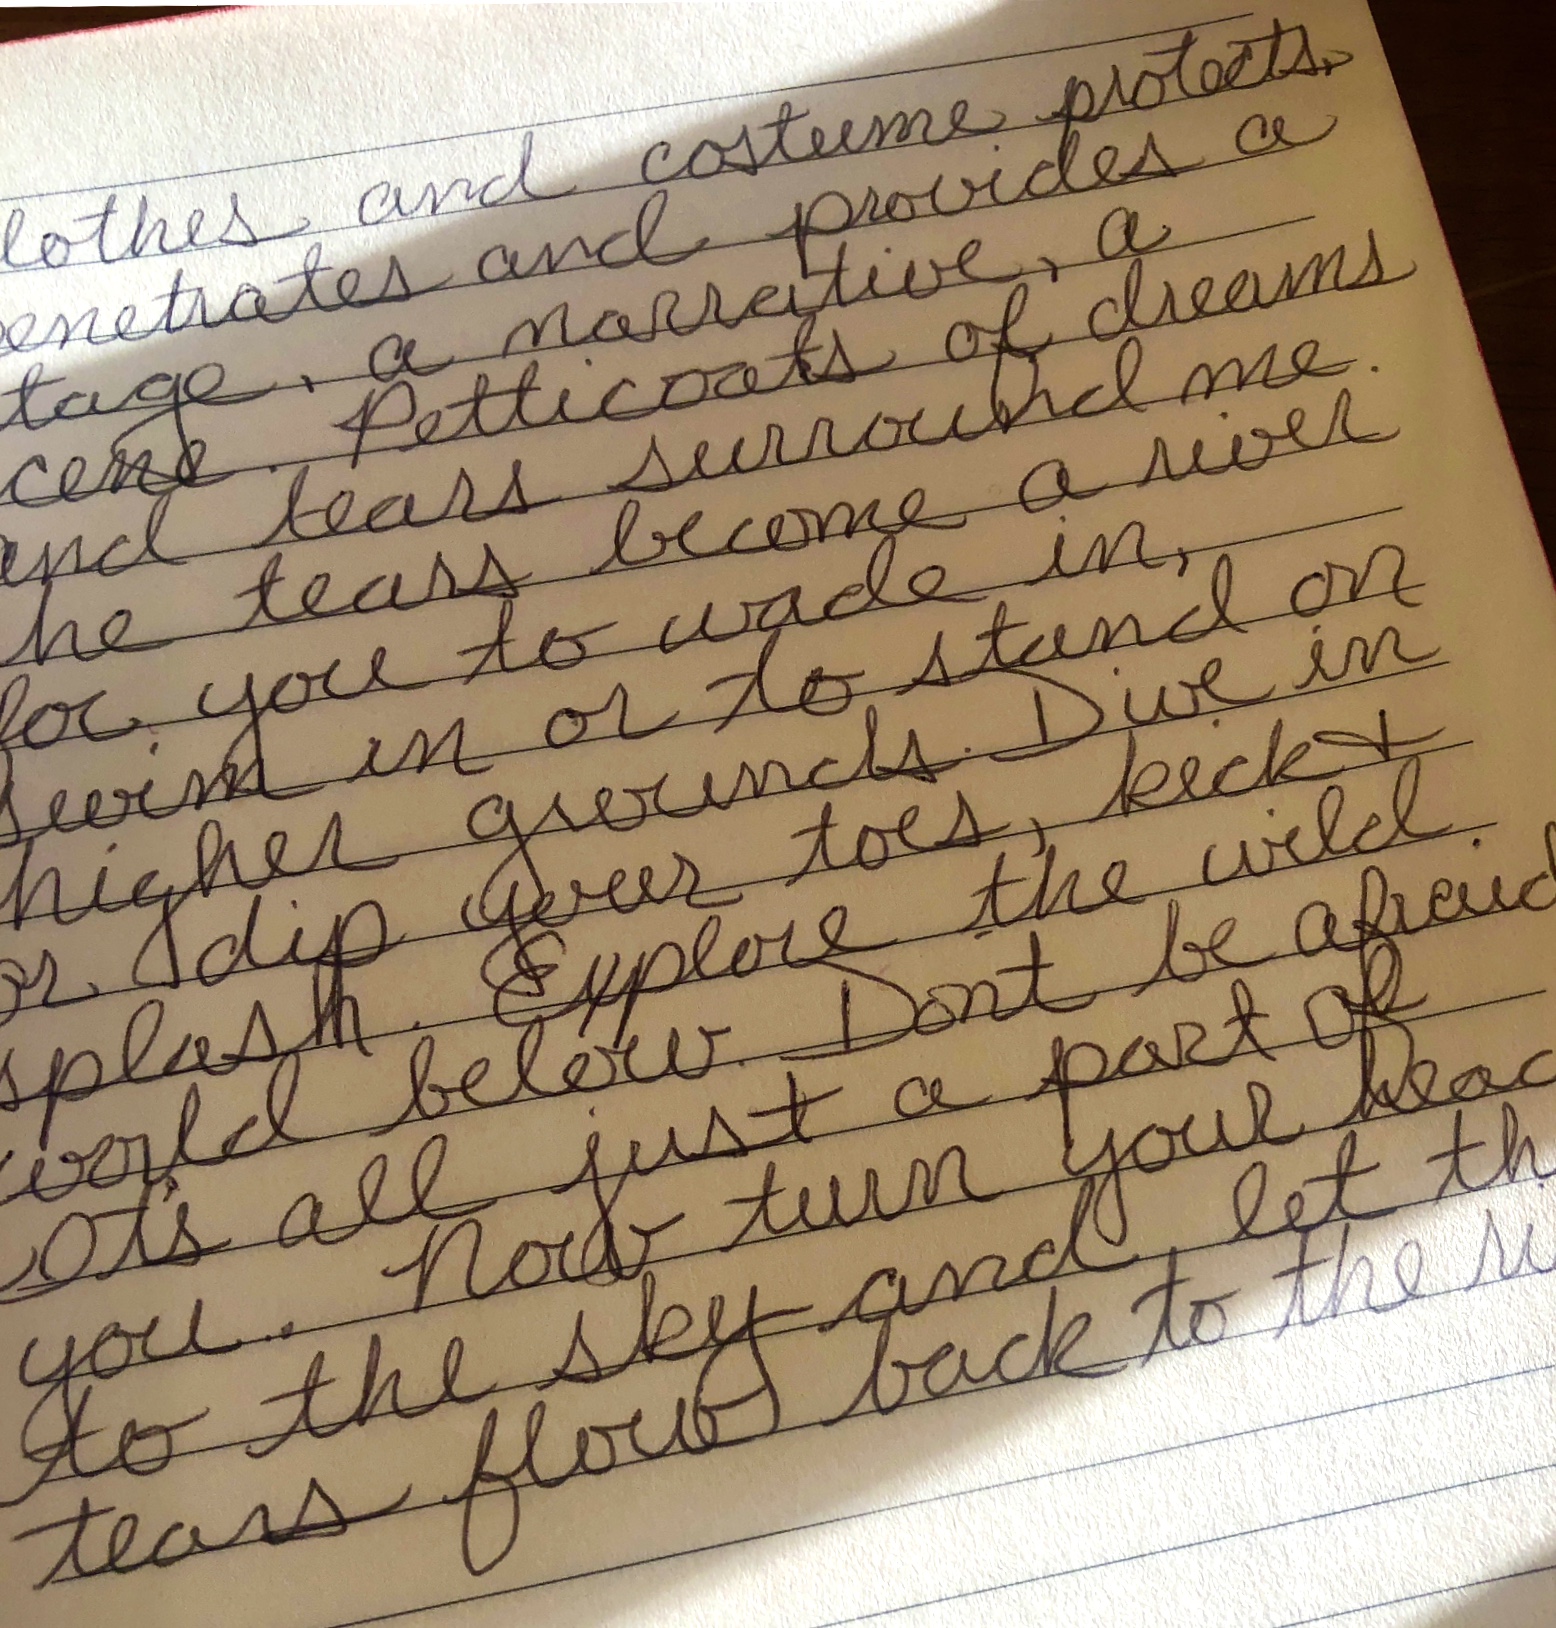 lothes and costume protects,
enetrates and provides a
tage, a narrative, a
cene. Petticoats of dreams
and tears surround me.
he tears become a river
for you to wade in,
swim in or to stand on
higher grounds. Dive in
or dip your toes, kick +
splash. Explore the wild
world below. Dont be afraid.
It's all just a part of
you.. Now turn your head
to the sky and let th
tears flow back to the ri